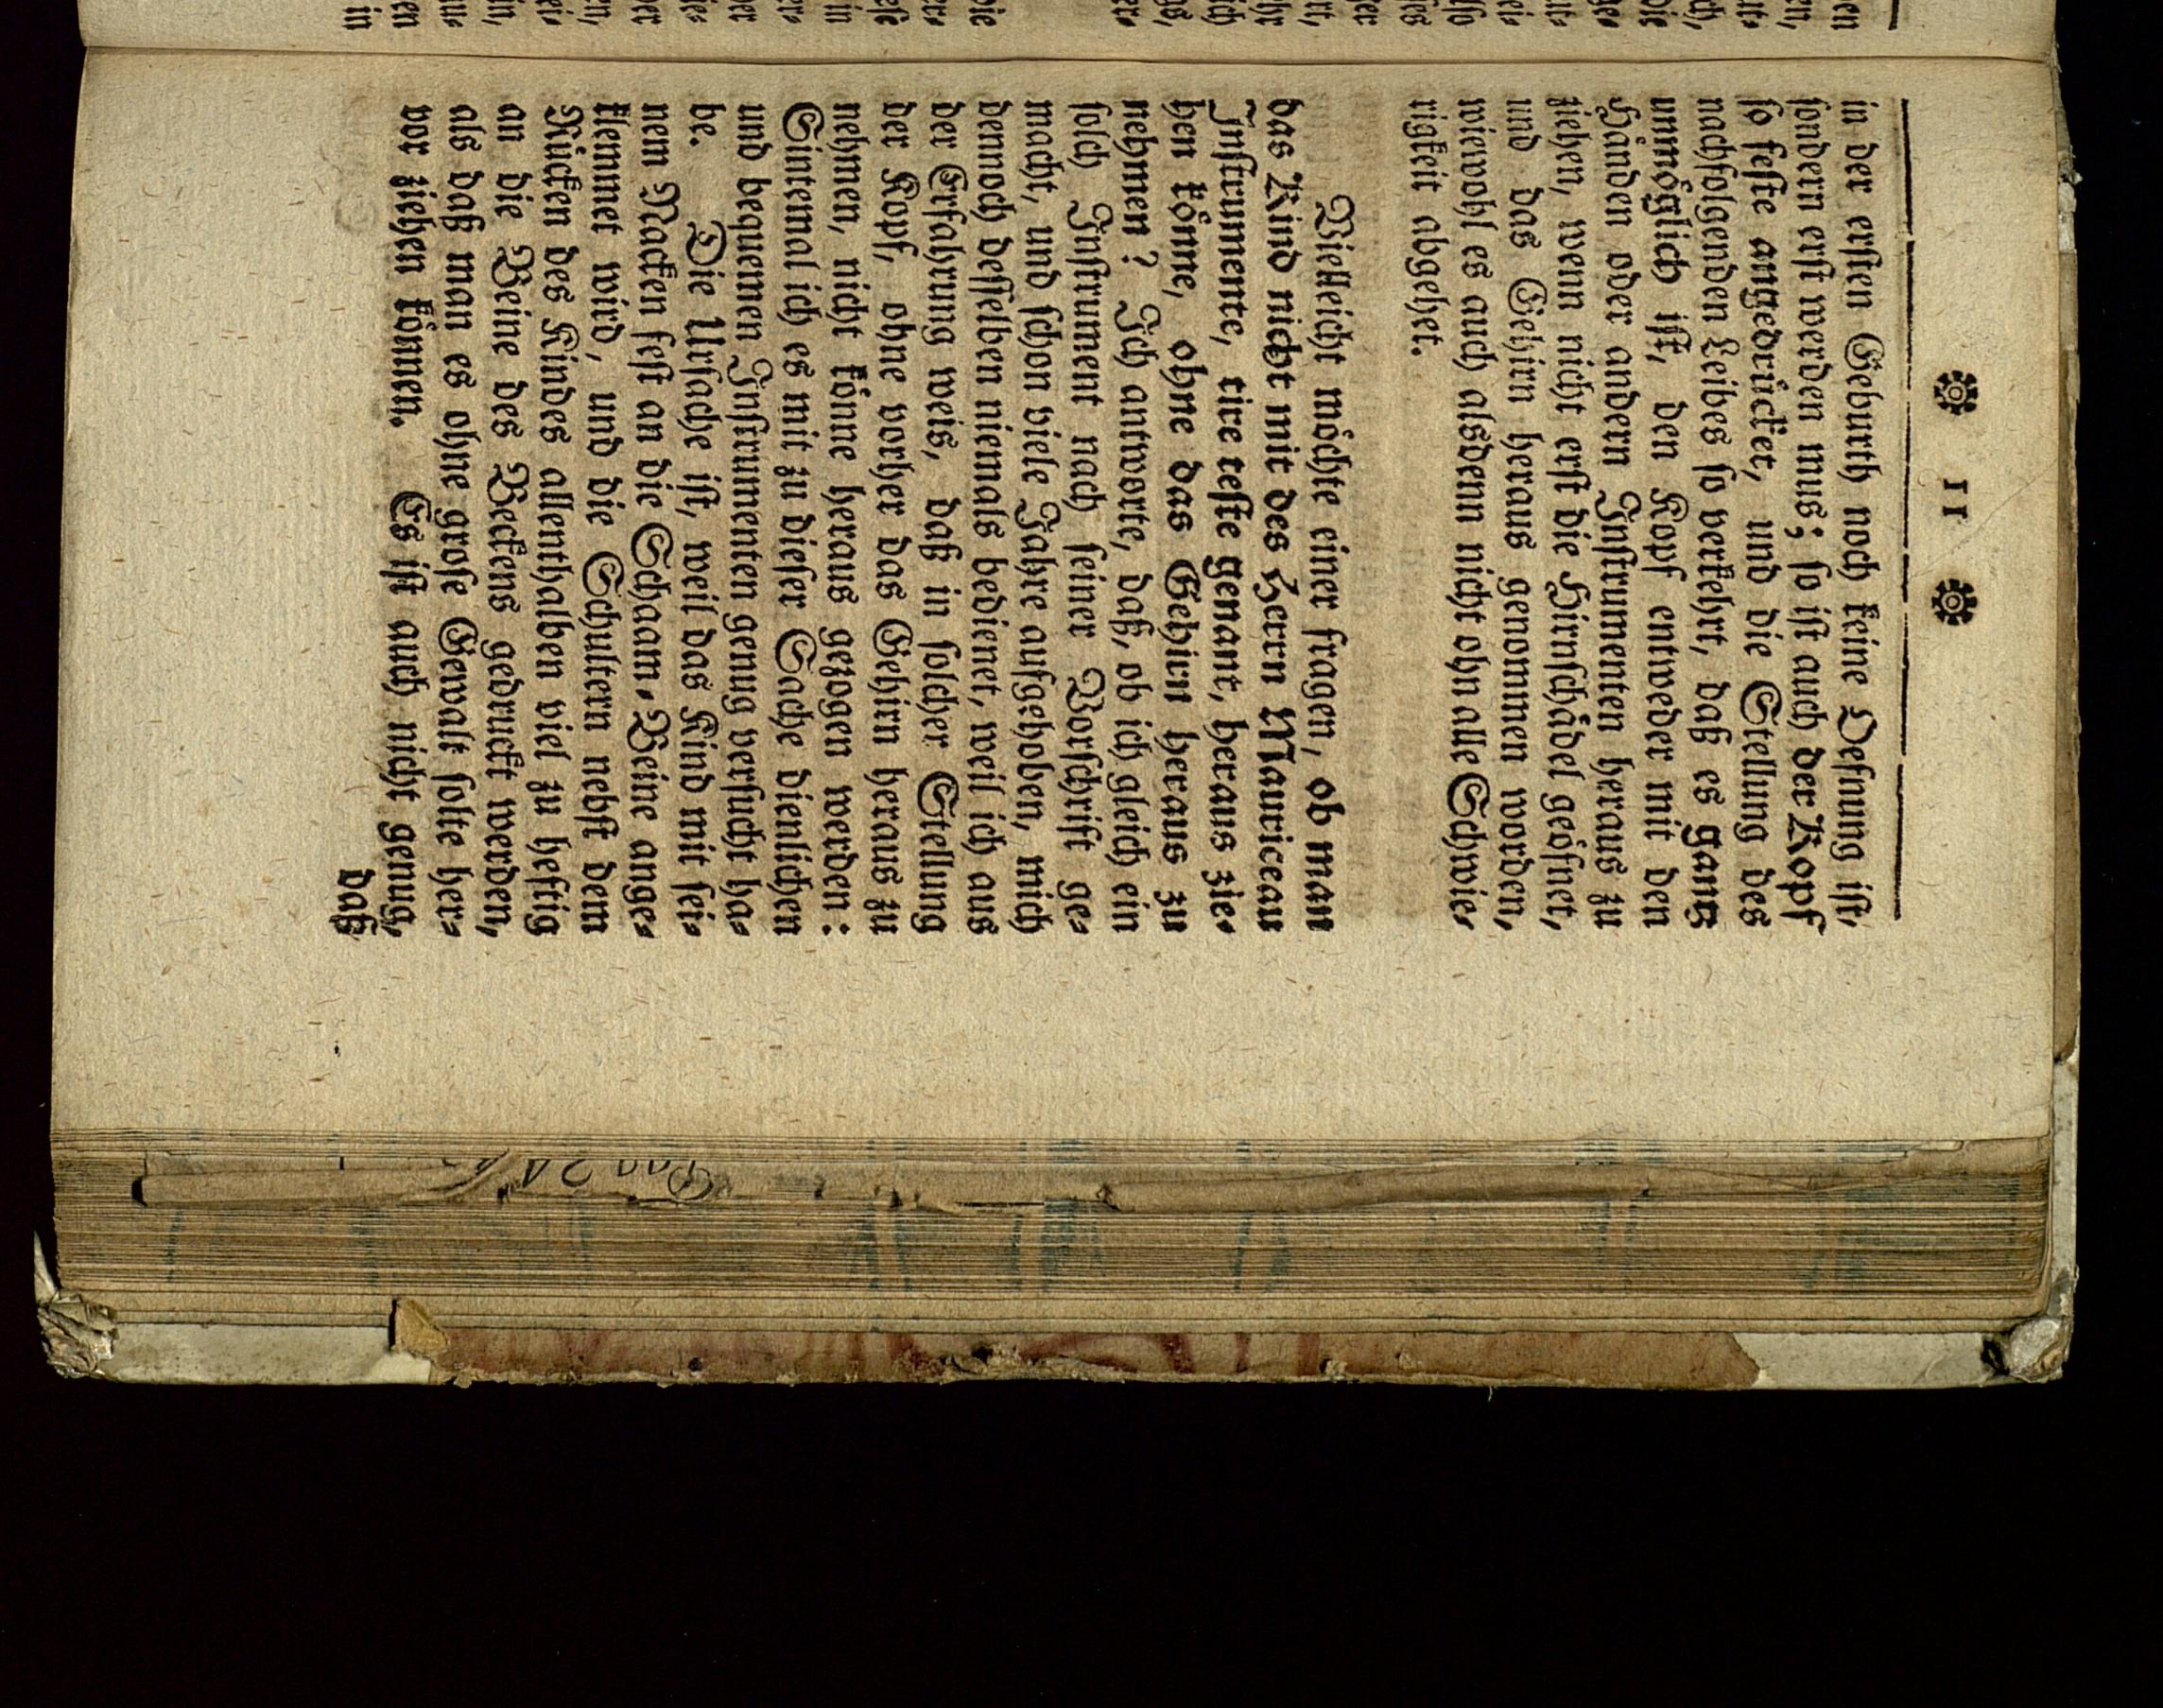 11
in der ersten Geburth noch keine Oefnung ist,
sondern erst werden mus; so ist auch der Kopf
so feste angedrücket, und die Stellung des
nachfolgenden Leibes so verkehrt, daß es gantz
unmöglich ist, den Kopf entweder mit den
Händen oder andern Instrumenten heraus zu
ziehen, wenn nicht erst die Hirnschädel geöfnet,
und das Gehirn heraus genommen worden,
wiewohl es auch alsdenn nicht ohn alle Schwie-
rigkeit abgehet.
Vielleicht möchte einer fragen, ob man
das Kind nicht mit des Herrn Mauriceau
Instrumente, tire teste genant, heraus zie-
hen könne, ohne das Gehirn heraus zu
nehmen? Ich antworte, daß, ob ich gleich ein
solch Instrument nach seiner Vorschrift ge-
macht, und schon viele Jahre aufgehoben, mich
dennoch desselben niemals bedienet, weil ich aus
der Erfahrung weis, daß in solcher Stellung
der Kopf, ohne vorher das Gehirn heraus zu
nehmen, nicht könne heraus gezogen werden:
Sintemal ich es mit zu dieser Sache dienlichen
und bequemen Instrumenten genug versucht ha-
be. Die Ursache ist, weil das Kind mit sei-
nem Nacken fest an die Schaam-Beine ange-
klemmet wird, und die Schultern nebst dem
Rücken des Kindes allenthalben viel zu heftig
an die Beine des Beckens gedruckt werden,
als daß man es ohne grose Gewalt solte her-
vor ziehen können. Es ist auch nicht genug,
daß
Pag 21